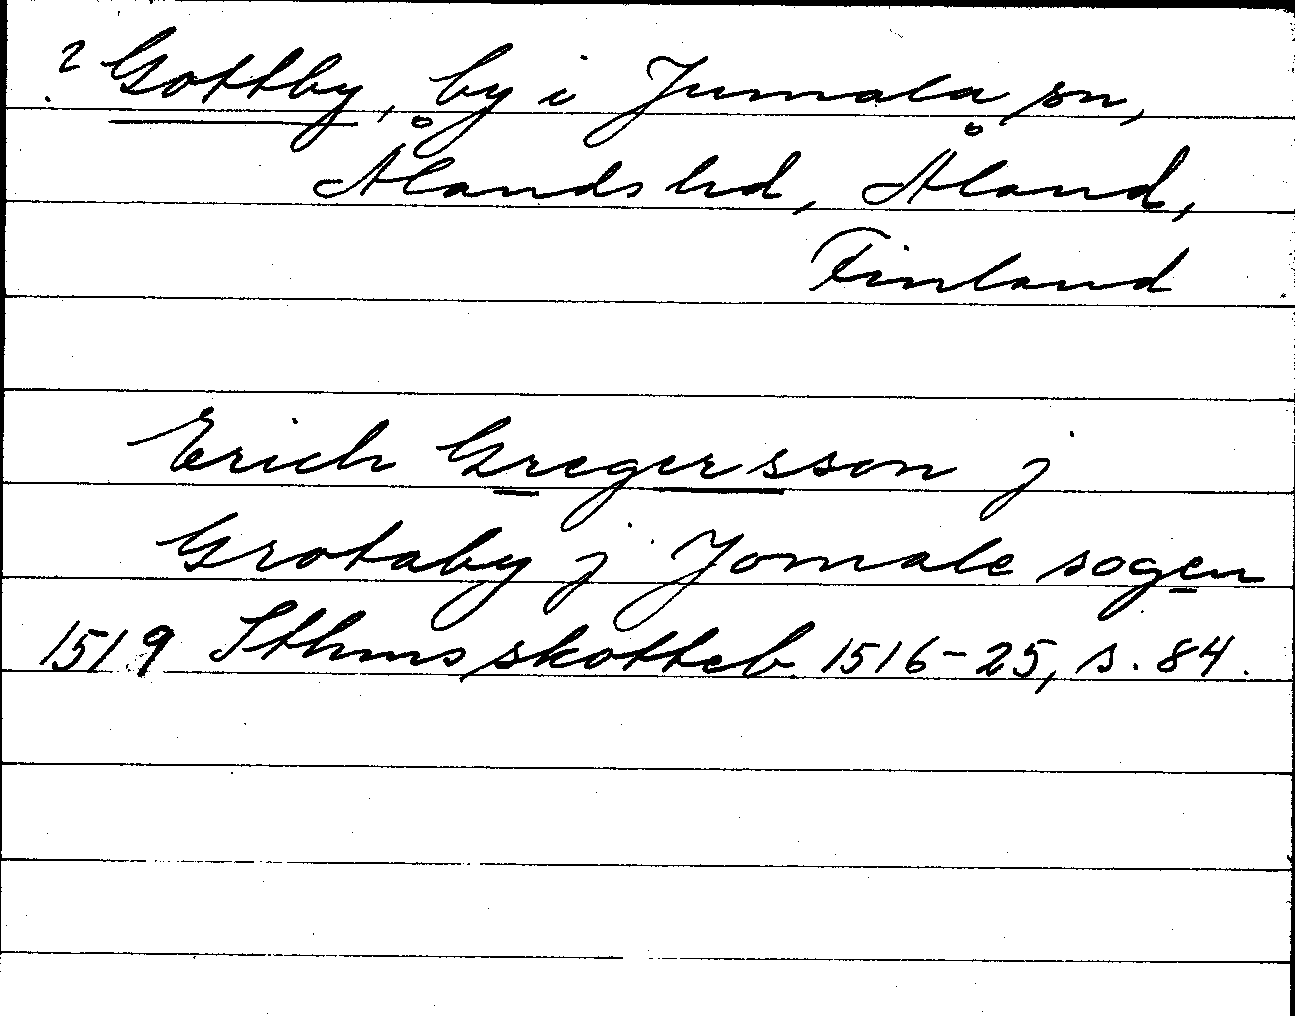 ? Gottby, by i Jumala sn,
Ålands hd, Åland,
Finland
Erich Gregersson j
Grotaby j Jomale sogen
1519 Sthms skotteb. 1516-25, s. 84.